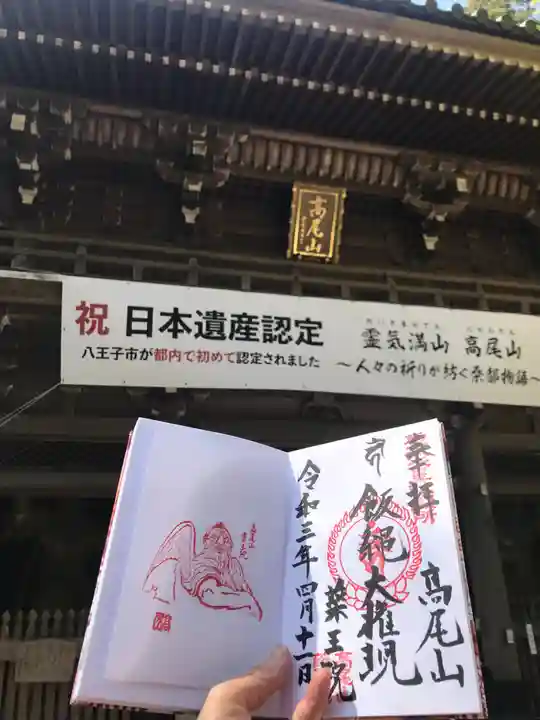 高尾山
祝 日本遺産認定
八王子市が都内で初めて認定されました
霊気満山 高尾山
～人々の祈りが紡ぐ桑都物語～
奉拝
高尾山
飯縄大権現
薬王院
令和三年四月十一日
高尾山
薬王院